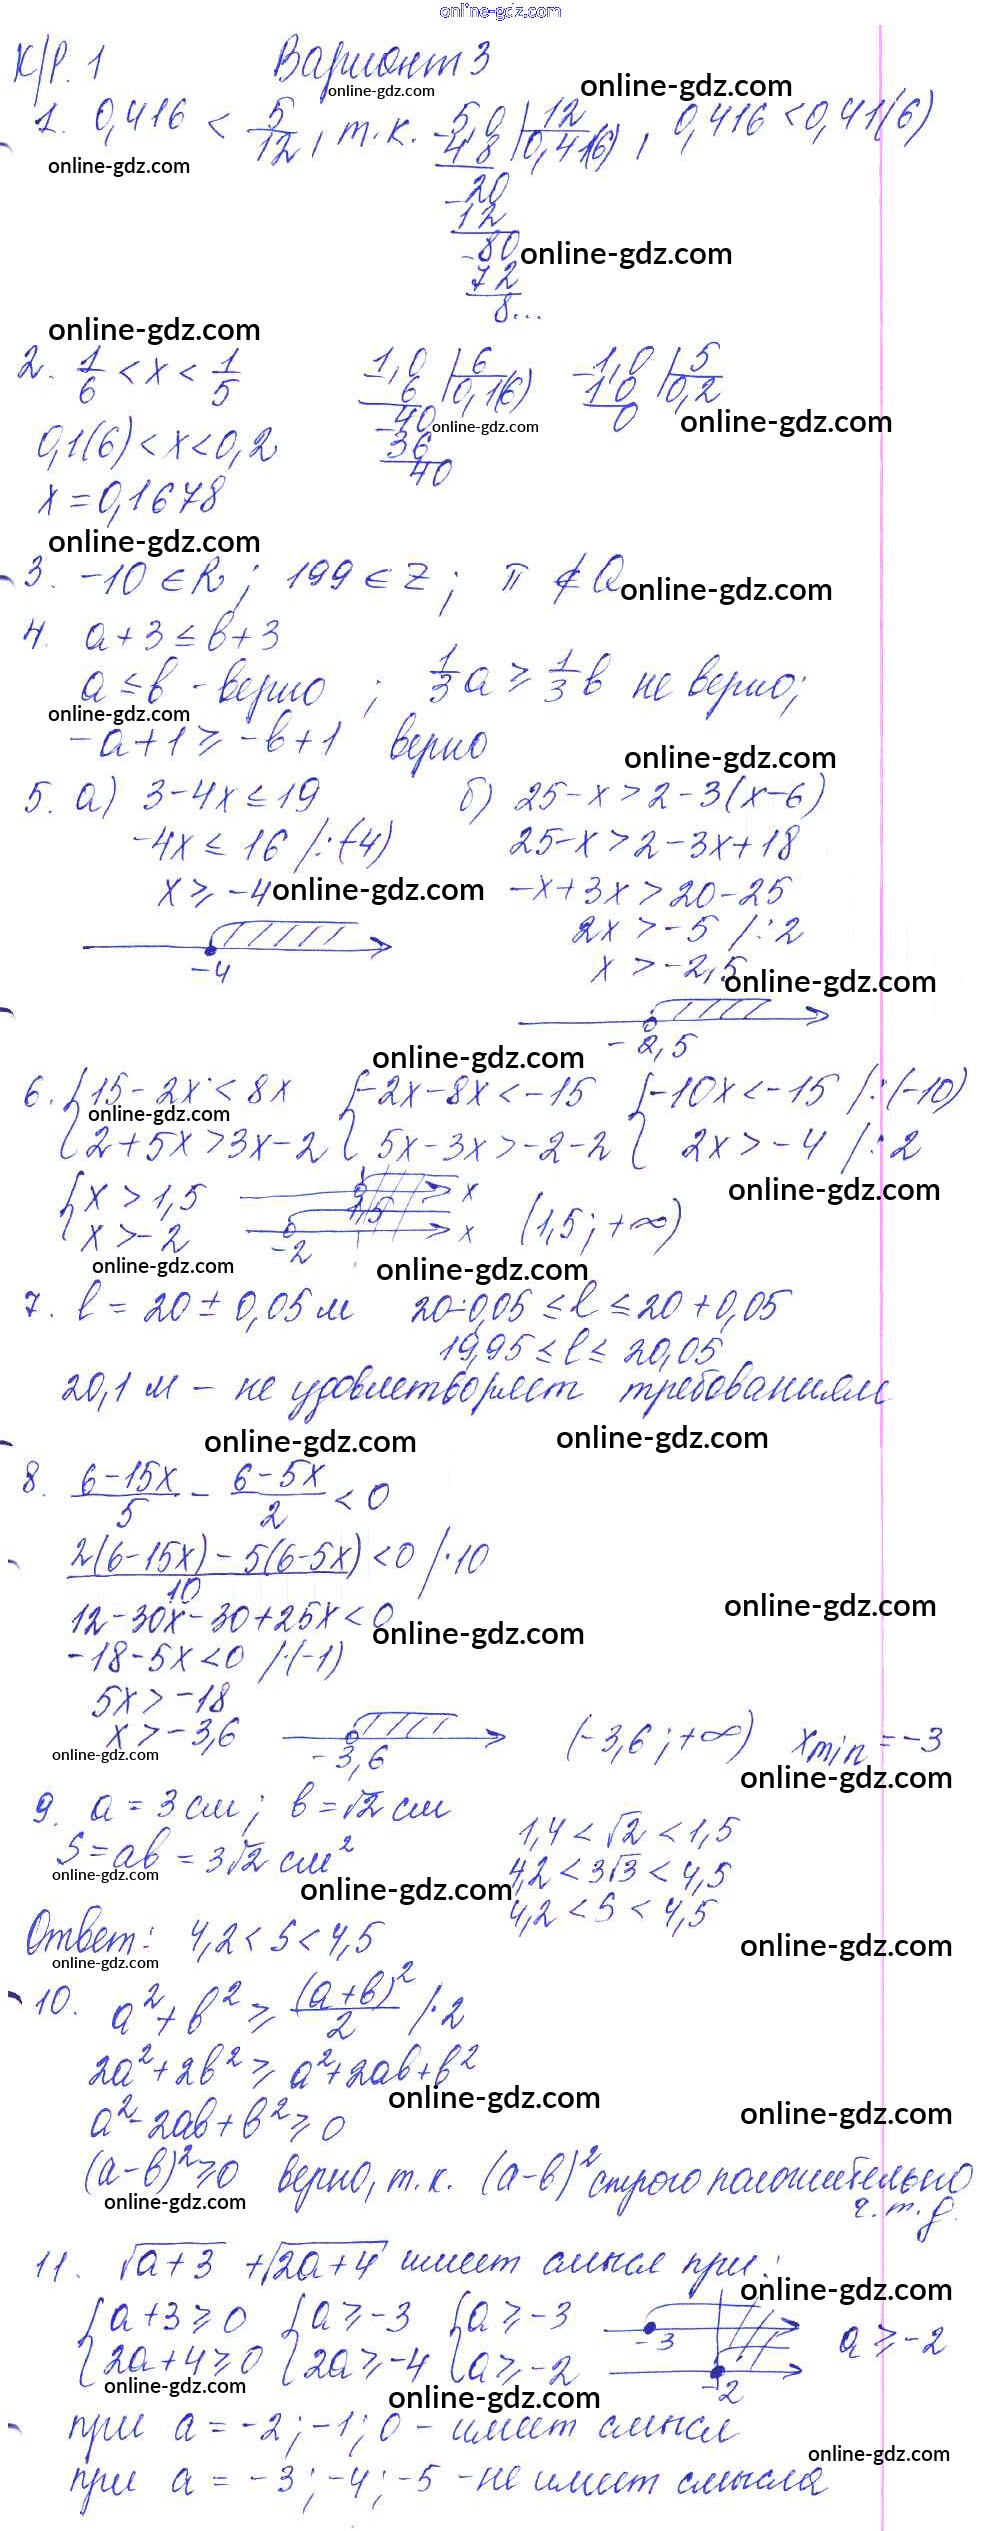 online-gdz.com
К/р. 1 Вариант 3
online-gdz.com online-gdz.com
1. 0,416 < 5/12, т.к. 5,0 | 12 , 0,416 < 0,41(6)
48 | 0,41(6)
online-gdz.com
20
12
80 online-gdz.com
72
8...
online-gdz.com
2. 1/6 < x < 1/5 1,0 | 6 1,0 | 5
6 | 0,1(6) 10 | 0,2
40 0
online-gdz.com online-gdz.com
0,1(6) < x < 0,2 36
40
x = 0,1678
online-gdz.com
3. -10 ∈ R; 199 ∈ Z; π ∉ Q
online-gdz.com
4. a + 3 ≤ b + 3
a ≤ b - верно ; 1/3 a ≥ 1/3 b не верно;
online-gdz.com
-a + 1 ≥ -b + 1 верно
online-gdz.com
5. а) 3 - 4x ≤ 19 б) 25 - x > 2 - 3(x - 6)
-4x ≤ 16 /:(-4) 25 - x > 2 - 3x + 18
x ≥ -4 online-gdz.com -x + 3x > 20 - 25
2x > -5 /:2
-4 x > -2,5
online-gdz.com
-2,5
online-gdz.com
6. { 15 - 2x < 8x { -2x - 8x < -15 { -10x < -15 /:(-10)
online-gdz.com
{ 2 + 5x > 3x - 2 { 5x - 3x > -2 - 2 { 2x > -4 /:2
{ x > 1,5 1,5 x online-gdz.com
{ x > -2 -2 x (1,5; +∞)
online-gdz.com online-gdz.com
7. l = 20 ± 0,05 м 20 - 0,05 ≤ l ≤ 20 + 0,05
19,95 ≤ l ≤ 20,05
20,1 м - не удовлетворяет требованиям
online-gdz.com online-gdz.com
8. (6 - 15x)/5 - (6 - 5x)/2 < 0
(2(6 - 15x) - 5(6 - 5x))/10 < 0 /·10
online-gdz.com
12 - 30x - 30 + 25x < 0
online-gdz.com
-18 - 5x < 0 /·(-1)
5x > -18
x > -3,6 -3,6 (-3,6; +∞) xmin = -3
online-gdz.com online-gdz.com
9. a = 3 см; b = √2 см 1,4 < √2 < 1,5
S = ab = 3√2 см² 4,2 < 3√3 < 4,5
online-gdz.com online-gdz.com
4,2 < S < 4,5
Ответ: 4,2 < S < 4,5 online-gdz.com
online-gdz.com
10. a² + b² ≥ (a + b)²/2 /·2
2a² + 2b² ≥ a² + 2ab + b²
online-gdz.com online-gdz.com
a² - 2ab + b² ≥ 0
(a - b)² ≥ 0 верно, т.к. (a - b)² строго положительно
online-gdz.com ч.т.д.
11. √(a + 3) + √(2a + 4) имеет смысл при:
online-gdz.com
{ a + 3 ≥ 0 { a ≥ -3 { a ≥ -3 -3 a ≥ -2
{ 2a + 4 ≥ 0 { 2a ≥ -4 { a ≥ -2 -2
online-gdz.com online-gdz.com
при a = -2; -1; 0 - имеет смысл
online-gdz.com
при a = -3; -4; -5 - не имеет смысла